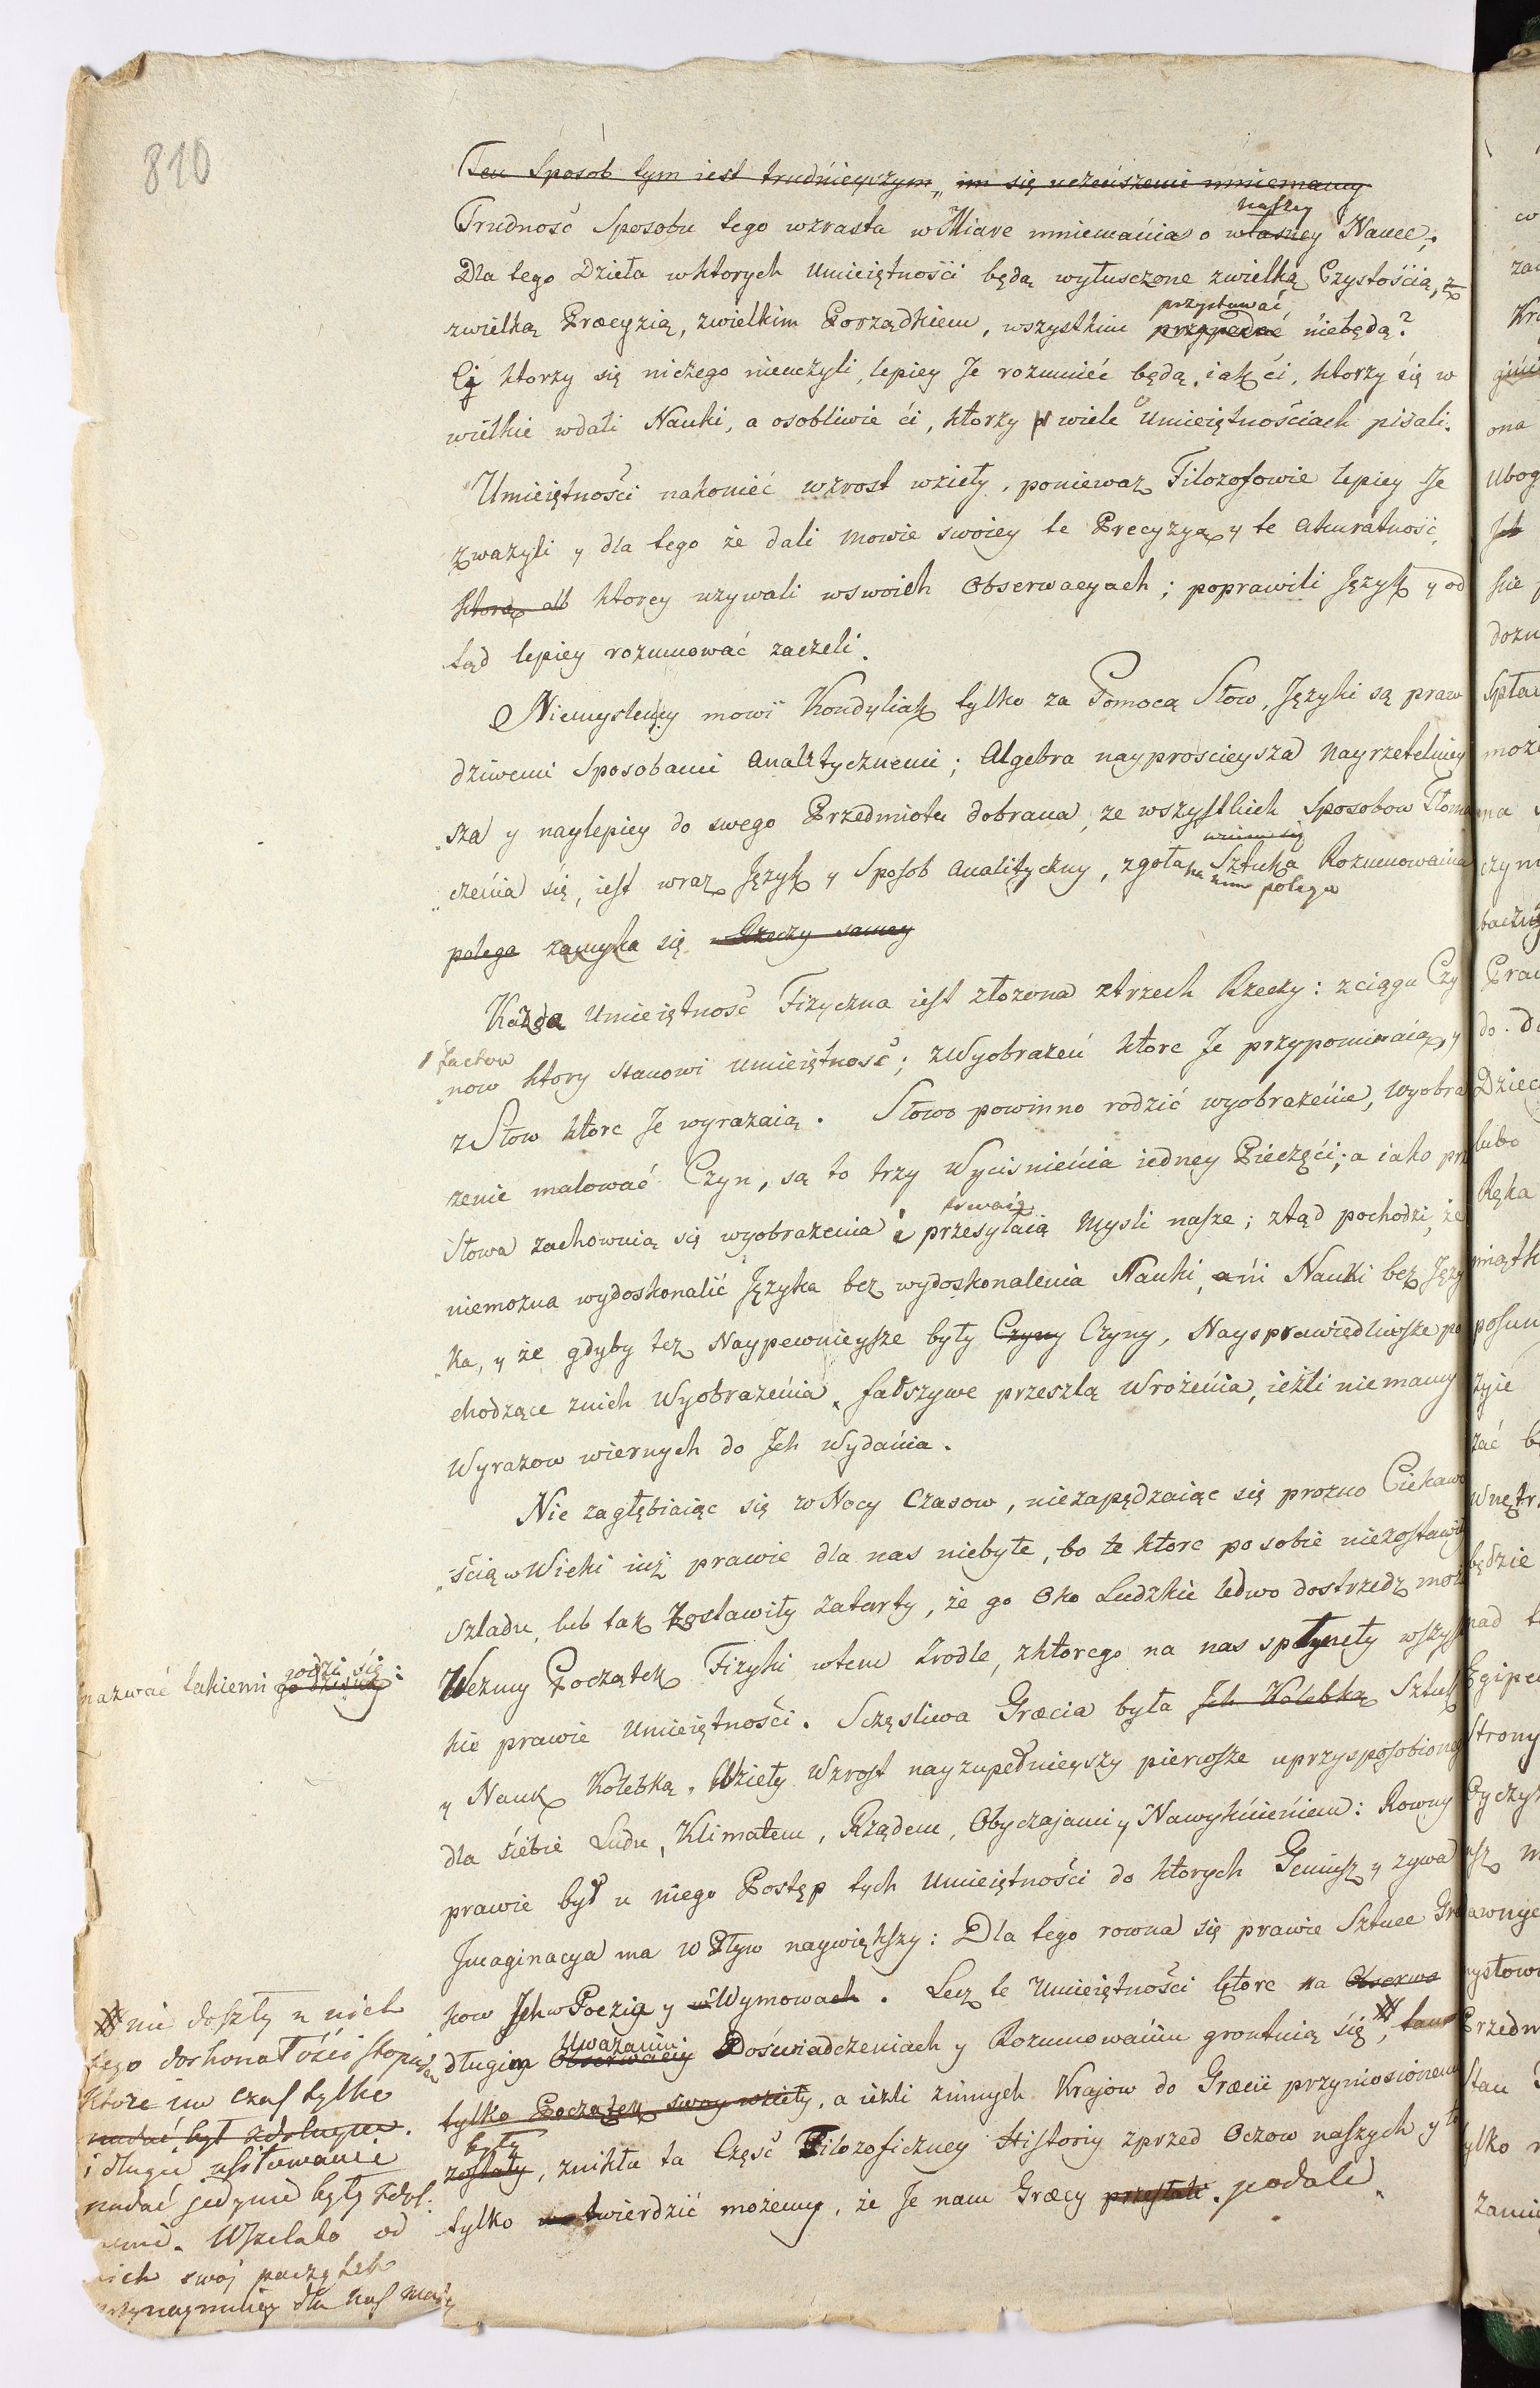 810
Ten Sposób tym iest trudnieyszym, im się uczeńszemi mniemamy
naszey
Trudność Sposobu tego wzrasta w Miarę mniemania o własney Nauce,
Dla tego Dzieła w ktorych Umieiętności będą wyłusczone zwielką Czystością, z
przystawać
zwielką Præcyzią, zwielkim Porządkiem, wszystkim niebędą?
Ci ktorzy się niczego nieuczyli, lepiey Je rozumieć będą, iak ći, ktorzy się w
wielkie wdali Nauki, a osobliwie ći, ktorzy wiele o Umieiętnościach pisali.
Umieiętności nakonieć wzrost wzieły, ponieważ Filozofowie lepiey Je
zważyli y dla tego że dali mowie swoiey te Precyzyą y te akuratność,
ktorą ktorey używali wswoich Obserwacyach; poprawili Język y od
tąd lepiey rozumować zaczeli.
Niemyslemy mowi Kondyliak tylko za Pomocą Słow, Języki są praw
dziwemi Sposobami Analitycznemi; Algebra nayprościeysza nayrzetelniey
sza y naylepiey do swego Przedmiotu dobrana, ze wszystkich Sposobow Tłoma
czenia się, iest wraz Język y Sposob analityczny, zgoła Sztuka Rozumowania
na nim polega
polega zamyka się w Rzeczy samey
Każda Umieiętność Fizyczna iest złożona ztrzech Rzeczy: z ciągu Czy
factow
now ktory stanowi umieiętność; z Wyobrażeń ktore Je przypominaią, y
z Słow ktore Je wyrażaią. Słowo powinno rodzić wyobrażenie, wyobra
żenie malować Czyn, są to trzy Wyciśnienia iedney Pieczęći; a iako prz
Słowa zachownią się wyobrażenia i przesyłaią Mysli nasze; ztąd pochodzi, że
niemożna wydoskonalić Języka bez wydoskonalenia Nauki, ani Nauki bez Języ
ka, y że gdyby też Naypewnieysze były Czyny Czyny, Naysprawiedliwsze po
chodzące znich Wyobrażenia, fałszywe przeszlą Wrożenia, ieżli niemamy
Wyrazow wiernych do Jch Wydania.
Nie zagłębiaiąc się w Nocy Czasow, niezapędzaiąc się prozno Ciekawo
ścią w Wieki iuż prawie dla nas niebyłe, bo te ktore po sobie niezostawiły
szladu, lub tak zostawiły zatarty, że go Oko Ludzkie ledwo dostrzedz może
Weźmy Początek Fizyki wtem Zrodle, zktorego na nas spłynęły wszyst
nazwać takiemi godzi się:
kie prawie Umieiętności. Sczęsliwa Græcia była Jch Kolebką Sztuk
y Nauk Kolebką. Wzieły Wzrost nayzupełnieyszy pierwsze uprzysposobionego
dla siebie Ludu, Klimatem, Rządem, Obyczajami y Nawyknieniem: Rowny
prawie był u niego Postęp tych Umieiętności do ktorych Geniusz y żywa
Jmaginacya ma wpływ naywiększy: Dla tego rowna się prawie Sztuce Gre
kow Jch w Poezia y w Wymowach. Lecz te Umieiętności ktore na Obserwa
Uważaniu
długim Obserwacij Doświadczeniach y Rozumowaniu grontuią się, tam
tylko Początek swoy wzieły, a ieżli zinnych Krajow do Græcii przyniosionemi
były
zostały, znikła ta Część Filozoficzney Historiy zprzed Oczow naszych y to
tylko twierdzić możemy, że Je nam Græcy przesłali podali.
nie doszły u nich
tego doskonałości stopnia
które im czas tylko
nadać był zdolnym.
i długie usiłowanie
nadać jedynie były zdol
nemi. Wszelako od
nich swój początek
przynaymniey dla nas mają